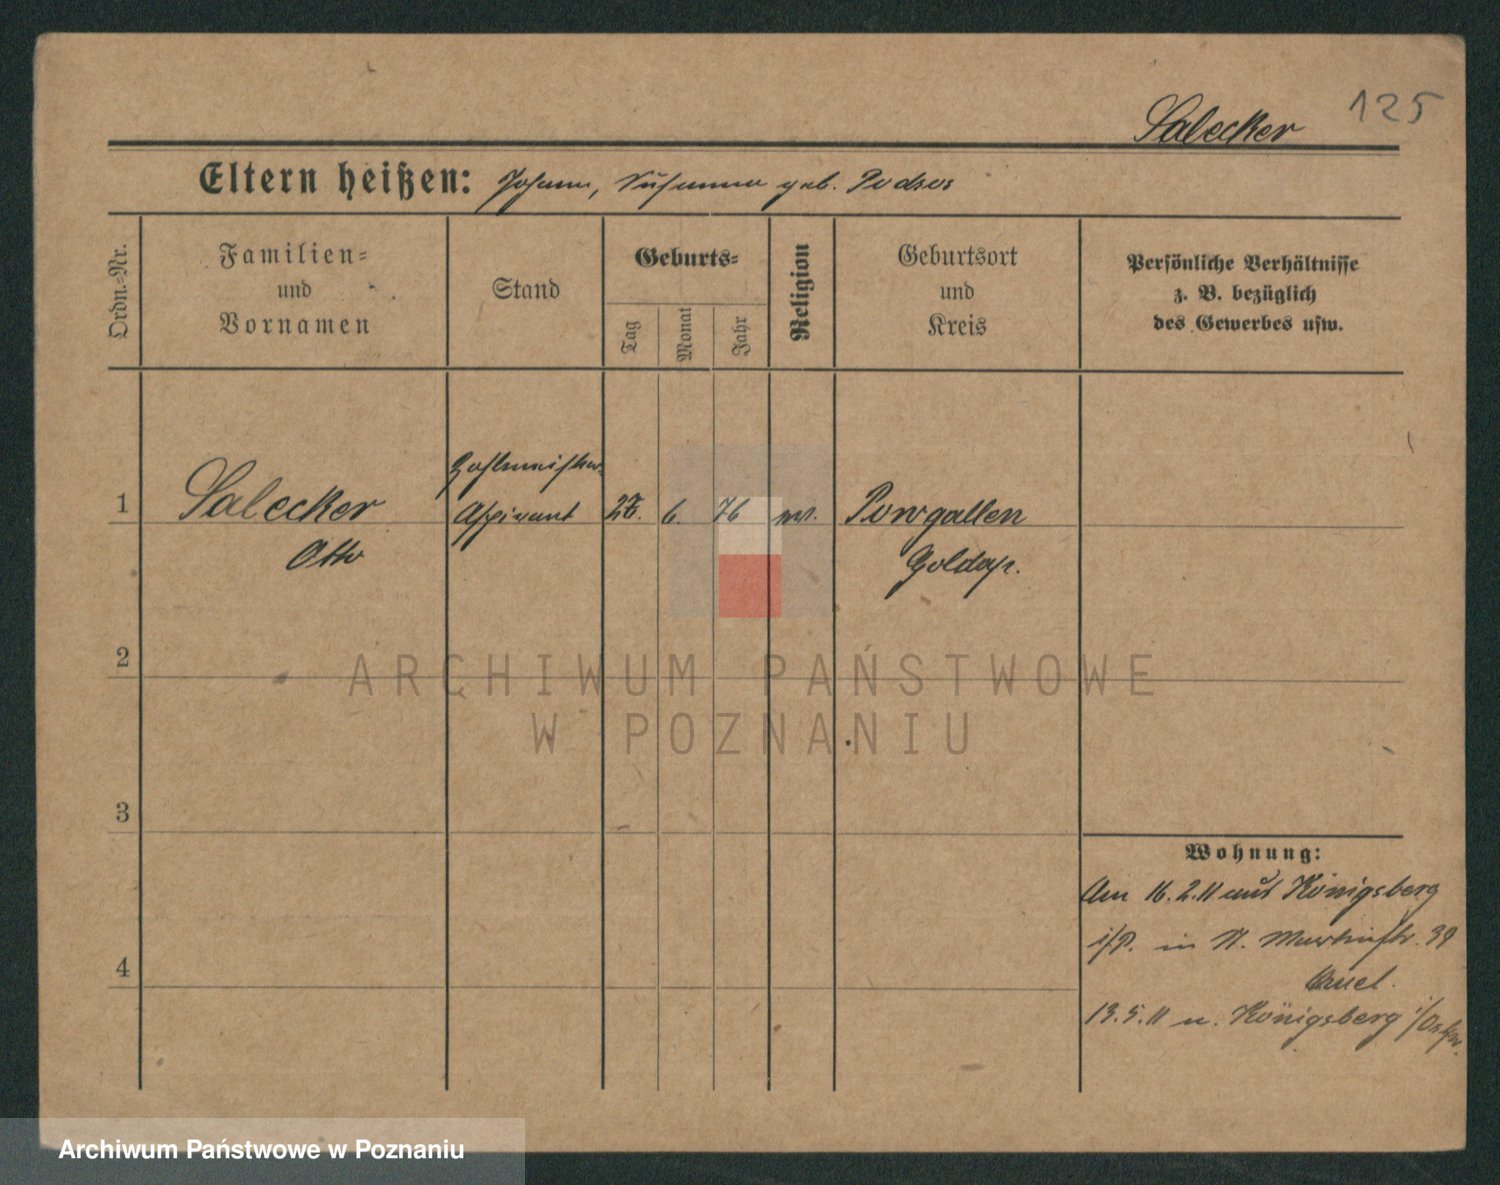 125
Salecker
Eltern heißen: Johann, Susanna geb. Podszus
Ordn.-Nr.
Familien-
und
Vornamen
Stand
Geburts-
Tag
Monat
Jahr
Religion
Geburtsort
und
Kreis
Persönliche Verhältnisse
z. B. bezüglich
des Gewerbes usw.
1
Salecker
Otto
Zahlmeister-
Aspirant
6. 76
Goldap.
2
3
4
ARCHIWUM PAŃSTWOWE
W POZNANIU
Wohnung:
Am 16.2.11 aus Königsberg
i/P. in St. Martinstr. 39
13.5.11 n. Königsberg
Archiwum Państwowe w Poznaniu